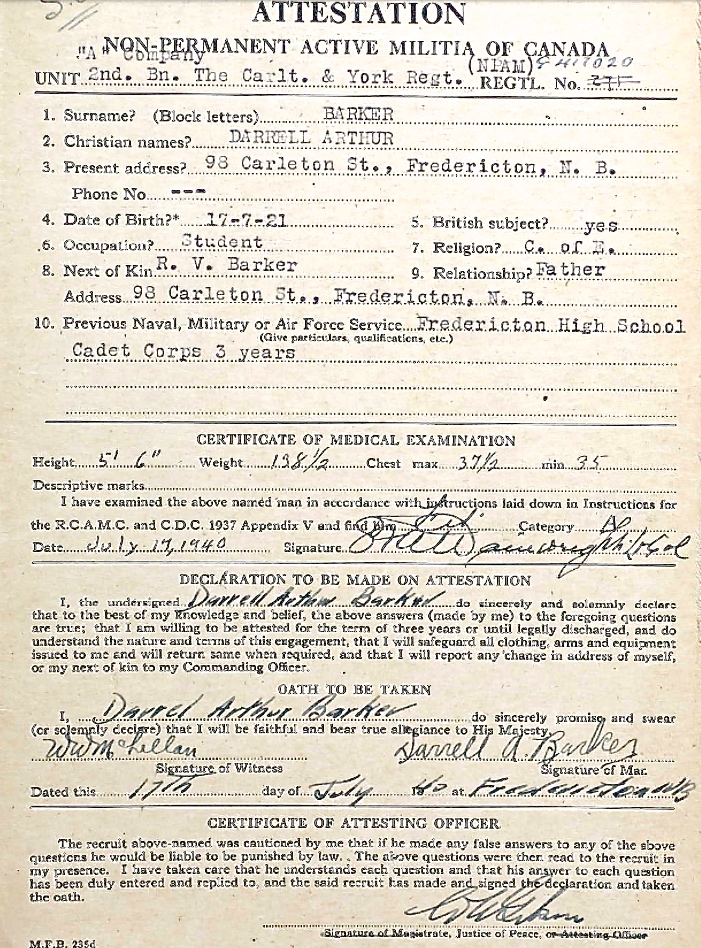 ATTESTATION
"A" Company
NON-PERMANENT ACTIVE MILITIA OF CANADA
(NPAM)
UNIT 2nd. Bn. The Carlt. & York Regt. REGTL. No.
1. Surname? (Block letters) BARKER
2. Christian names? DARRELL ARTHUR
3. Present address? 98 Carleton St., Fredericton, N. B.
Phone No. ---
4. Date of Birth?* 17-7-21 5. British subject? yes
6. Occupation? Student 7. Religion? C. of E.
8. Next of Kin R. V. Barker 9. Relationship? Father
Address 98 Carleton St., Fredericton, N. B.
10. Previous Naval, Military or Air Force Service Fredericton High School
(Give particulars, qualifications, etc.)
Cadet Corps 3 years
CERTIFICATE OF MEDICAL EXAMINATION
Height 5' 6" Weight 138 1/2 Chest max 37 1/2 min 35
Descriptive marks
I have examined the above named man in accordance with instructions laid down in Instructions for
the R.C.A.M.C. and C.D.C. 1937 Appendix V and find him Fit Category A
Date July 17, 1940 Signature
DECLARATION TO BE MADE ON ATTESTATION
I, the undersigned Darrell Arthur Barker do sincerely and solemnly declare
that to the best of my knowledge and belief, the above answers (made by me) to the foregoing questions
are true; that I am willing to be attested for the term of three years or until legally discharged, and do
understand the nature and terms of this engagement, that I will safeguard all clothing, arms and equipment
issued to me and will return same when required, and that I will report any change in address of myself,
or my next of kin to my Commanding Officer.
OATH TO BE TAKEN
I, Darrel Arthur Barker do sincerely promise and swear
(or solemnly declare) that I will be faithful and bear true allegiance to His Majesty.
WW McLellan Darrell A. Barker
Signature of Witness Signature of Man
Dated this 17th day of July 1940 at Fredericton NB
CERTIFICATE OF ATTESTING OFFICER
The recruit above-named was cautioned by me that if he made any false answers to any of the above
questions he would be liable to be punished by law. . The above questions were then read to the recruit in
my presence. I have taken care that he understands each question and that his answer to each question
has been duly entered and replied to, and the said recruit has made and signed the declaration and taken
the oath.
Signature of Magistrate, Justice of Peace, or Attesting Officer
M.F.B. 235d